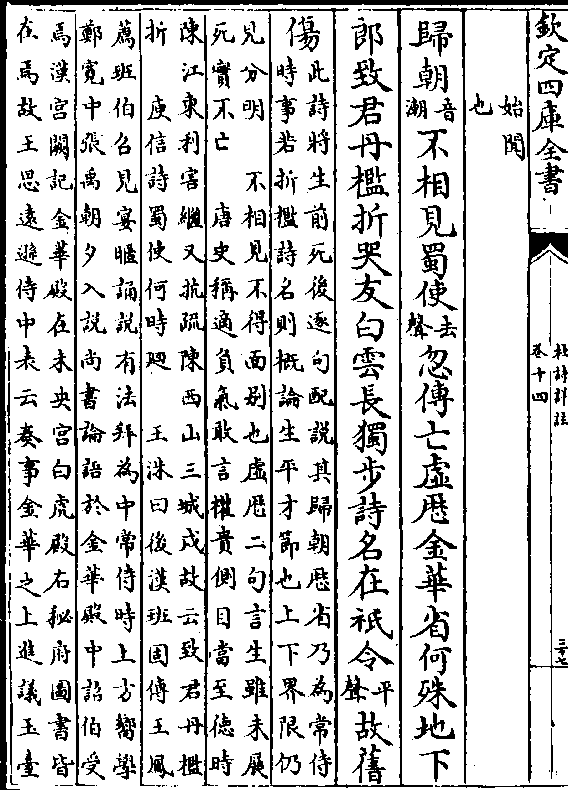 欽定四庫全書
杜詩詳註
卷十四
三十七
始聞
也
歸朝音潮不相見蜀使去聲忽傳亡虛歷金華省何殊地下
郎致君丹檻折哭友白雲長獨步詩名在祇令平聲故舊
傷此詩將生前死後逐句配說其歸朝歷省乃為常侍
時事若折檻詩名則概論生平才節也上下界限仍
見分明 不相見不得面別也虛歷二句言生雖未展
死實不亡 唐史稱適負氣敢言權貴側目當至德時
陳江東利害繼又抗疏陳西山三城戍故云致君丹檻
折 庾信詩蜀使何時迴 王洙曰後漢班固傳王鳳
薦班伯召見宴暱誦說有法拜為中常侍時上方嚮學
鄭寬中張禹朝夕入說尚書論語於金華殿中詔伯受
焉漢宮闕記金華殿在未央宮白虎殿右秘府圖書皆
在焉故王思遠遜侍中表云奏事金華之上進議玉臺